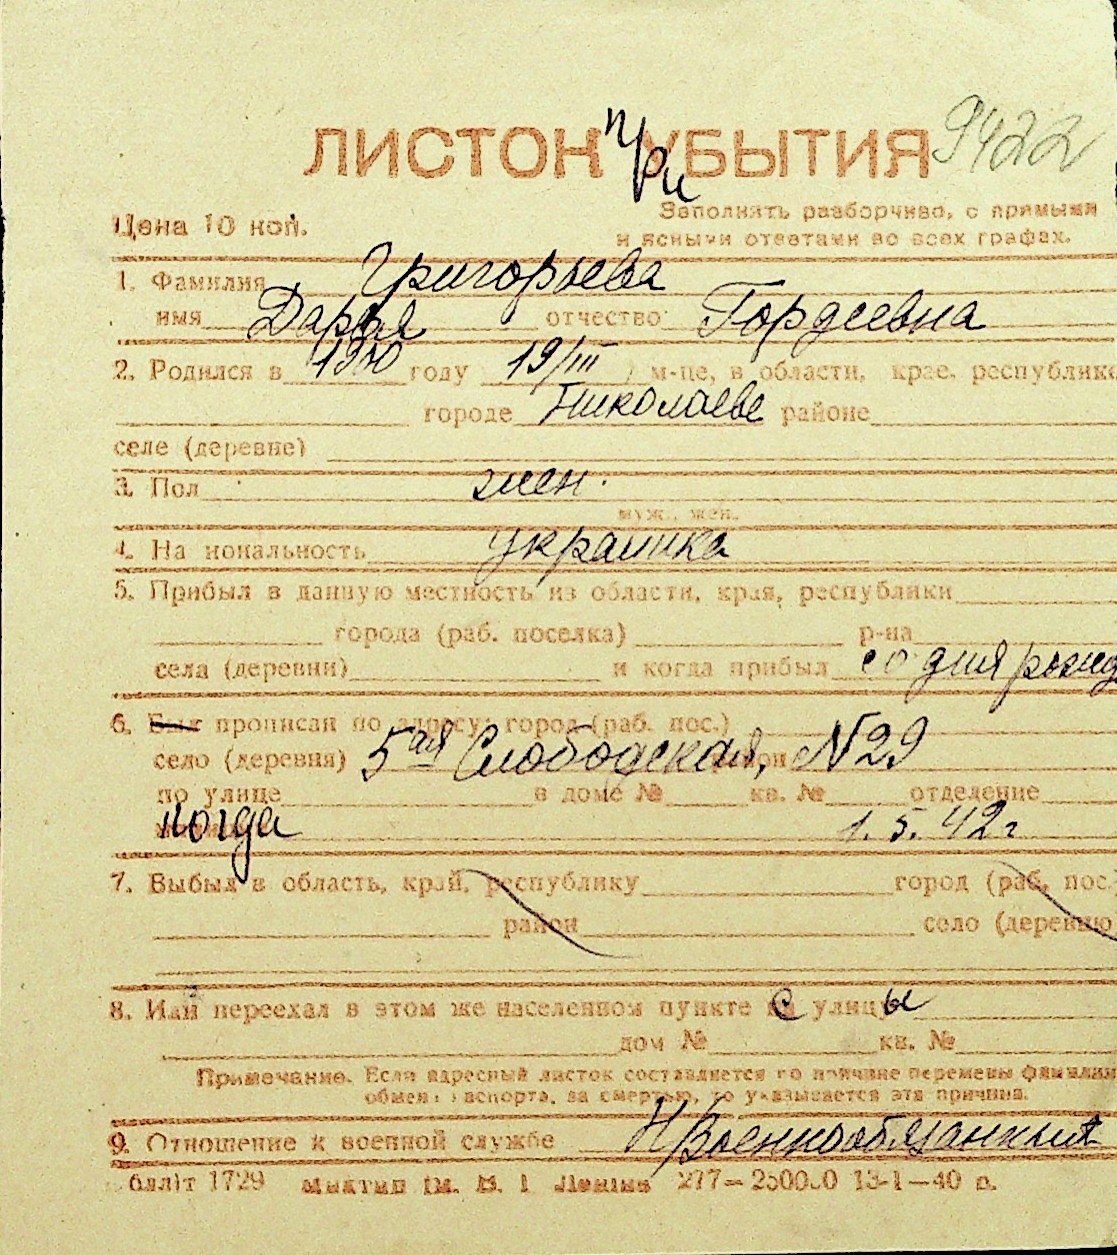 ЛИСТОК при УБЫТИЯ 9422
Цена 10 коп. Заполнять разборчиво, с прямыми
и ясными ответами во всех графах.
1. Фамилия Григорьева
имя Дарья отчество Гордеевна
2. Родился в году 19/III м-це, в области, крае, республике
городе Николаеве районе
селе (деревне)
3. Пол жен.
муж., жен.
4. На иональность украинка
5. Прибыл в данную местность из области, края, республики
города (раб. поселка) р-на
села (деревни) и когда прибыл со дня рожд
6. Был прописан по адресу: город (раб. пос.)
село (деревня) 5ая Слободская, N29
по улице в доме № кв. № отделение
когда 1.5.42г
7. Выбыл в область, край, республику город (раб. пос.
район село (деревню)
8. Или переехал в этом же населенном пункте с улицы
дом № кв. №
Примечание. Если адресный листок составляется по причине перемены фамилии
обмена паспорта, за смертью, то указывается эта причина.
9. Отношение к военной службе Н/Военнообязанная
1729 277— 13-1—40 р.